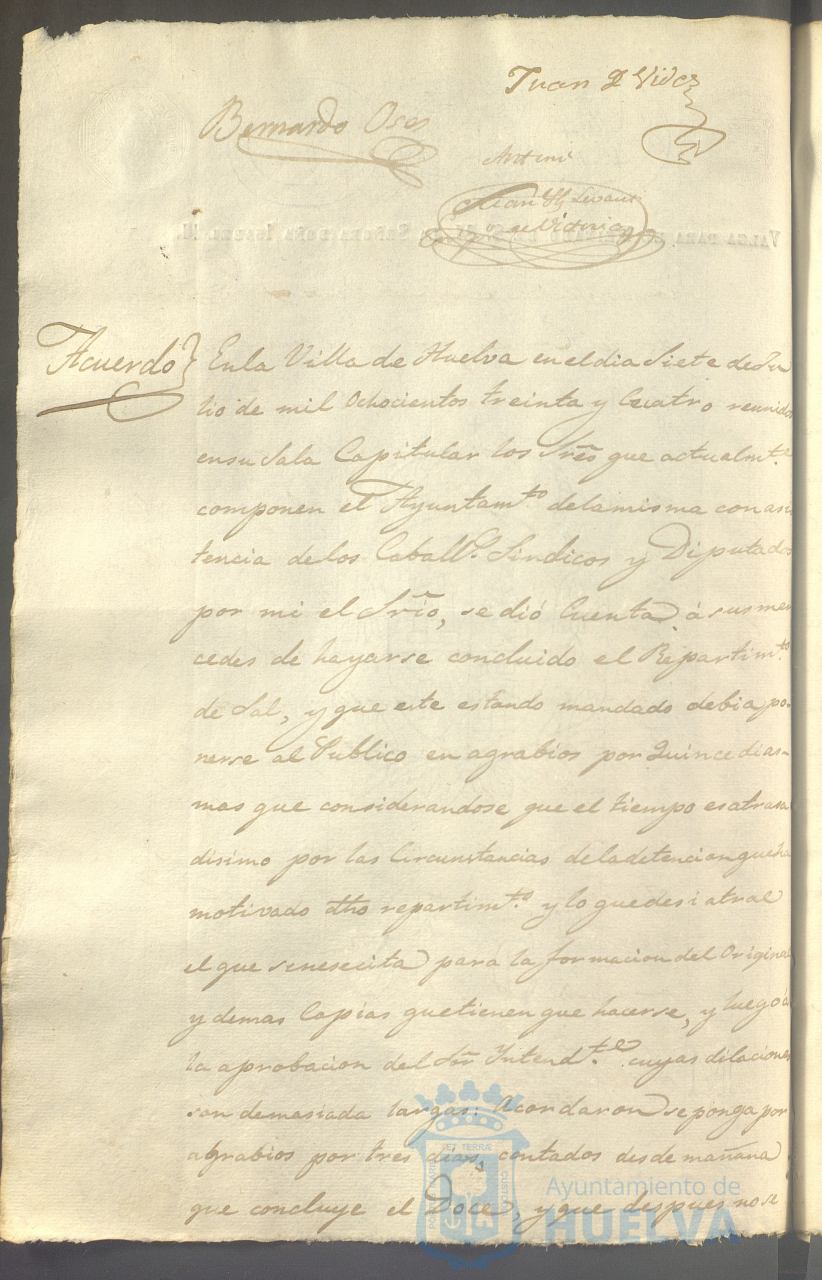 Juan D Vides
Bernardo Oses
Antoni
Juan
de Victoria
VALGA PARA EL REINADO DE LA SEÑORA DOÑA ISABEL II.
Acuerdo} En la Villa de Huelva en el dia Siete de Ju
lio de mil Ochocientos treinta y Cuatro reunidos
en su Sala Capitular los Sres que actualmte
componen el Ayuntamto de la misma con asis
tencia de los Caballs Sindicos y Diputados
por mi el Srio, se dió Cuenta á sus mer
cedes de hayarse concluido el Repartimto
de Sal, y que este estando mandado debia po-
nerse al Publico en agrabios por Quince dias-
mas que considerandose que el tiempo es atrasa
disimo por las Circunstancias de la detencion que ha
motivado dho repartimto y lo que desi atrae
el que senesecita para la formacion del Original
y demas Copias que tienen que hacerse, y luego á
la aprobacion del Sor Yntendte cuyas dilaciones
son demasiada largas: Acordaron se ponga por
agrabios por tres dias, contados desde mañana
que concluye el Doce, y que despues no se
Ayuntamiento de
HUELVA